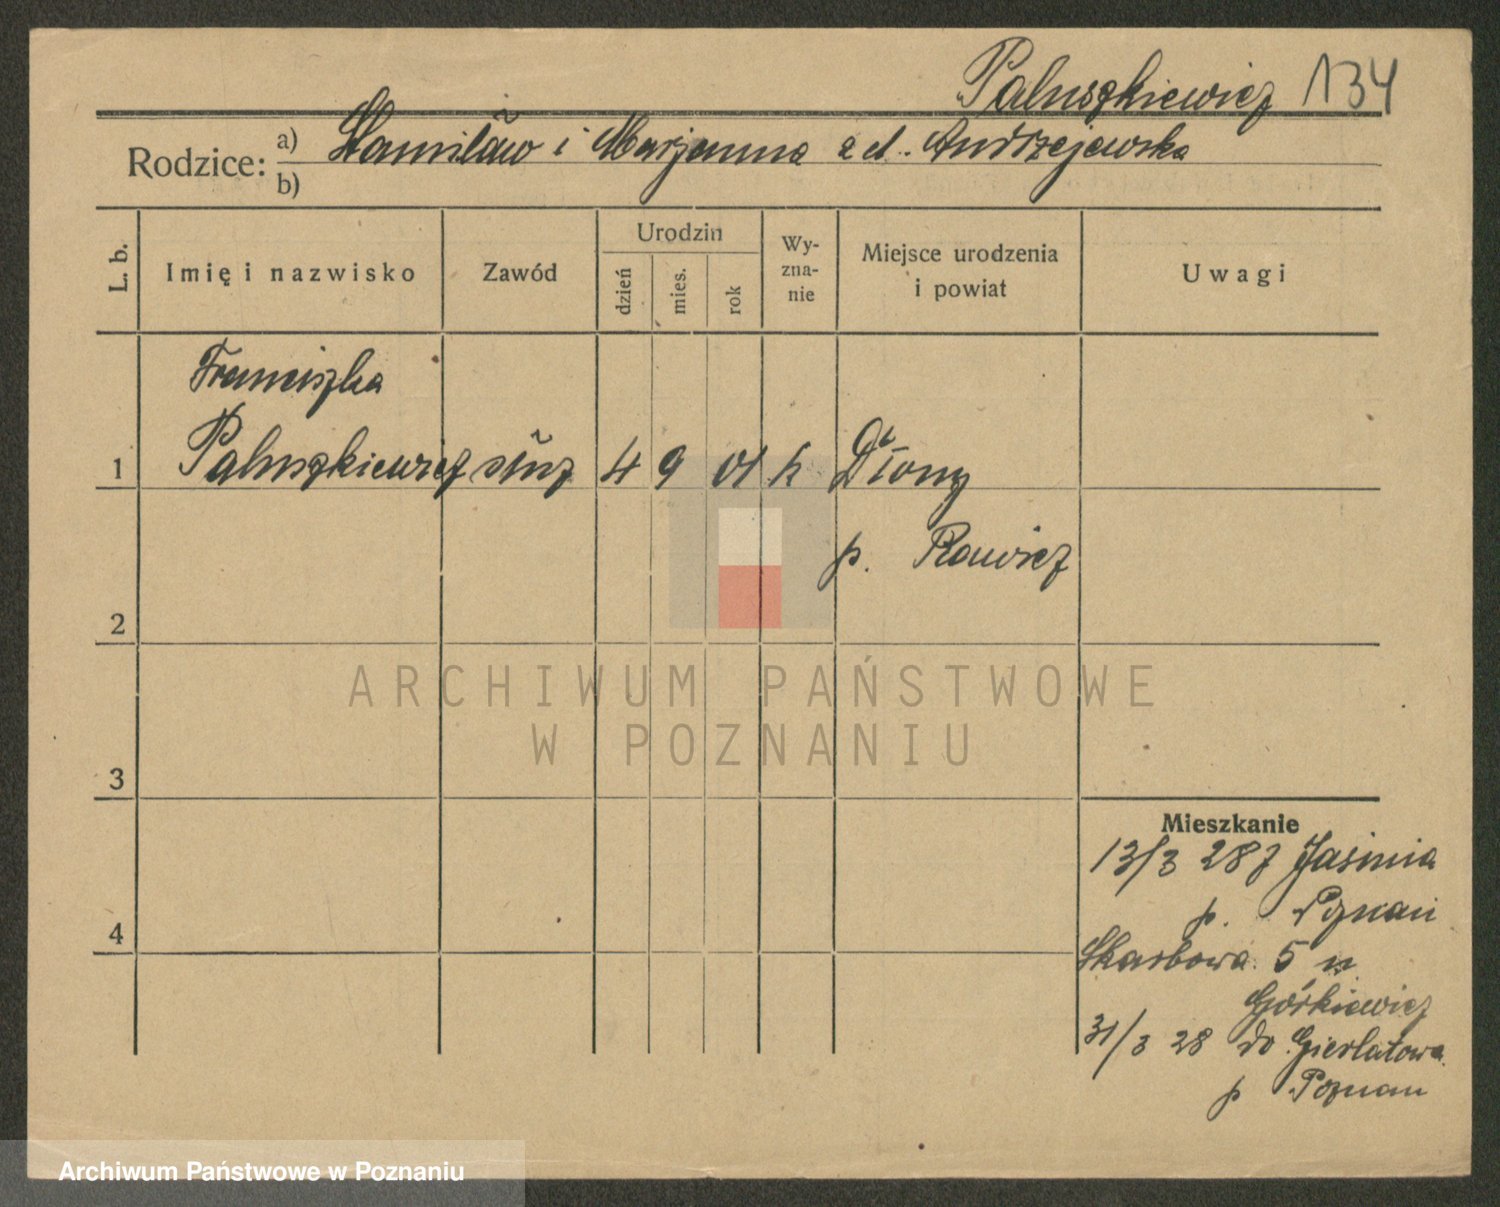 Paluszkiewicz 134
Rodzice: a) Stanisław i Marjanna zd. Andrzejewska
b)
L. b.
Imię i nazwisko
Zawód
Urodzin
dzień
mies.
rok
Wy-
zna-
nie
Miejsce urodzenia
i powiat
Uwagi
Franciszka
1 Paluszkiewicz służ 4 9 01 k Dłony
p. Rawicz
2
ARCHIWUM PAŃSTWOWE
W POZNANIU
3
Mieszkanie
13/3 28 z Jasinia
p. Poznań
4
Skarbowa 5 u
Górkiewicz
31/3 28 do Gierłatowa
p Poznań
Archiwum Państwowe w Poznaniu